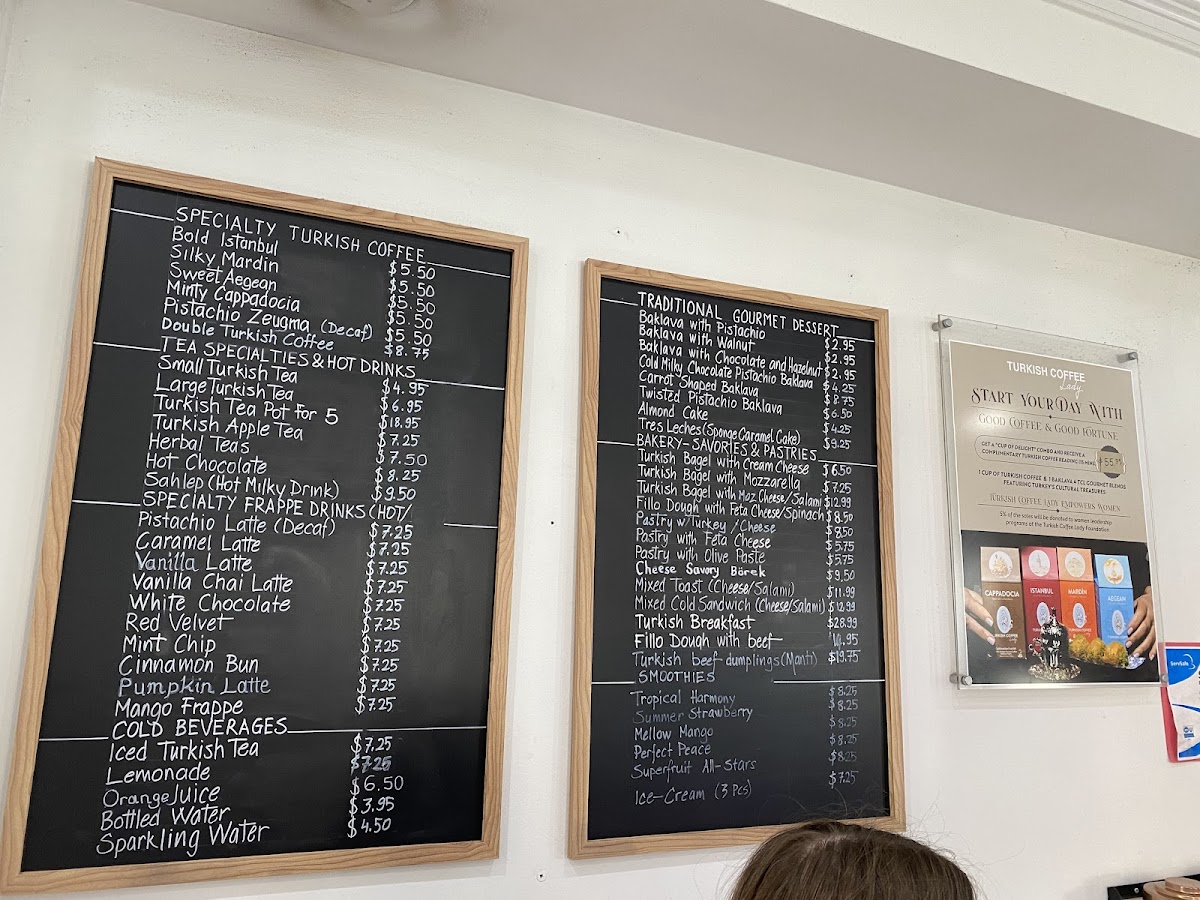 SPECIALTY TURKISH COFFEE
Bold Istanbul $5.50
Silky Mardin $5.50
Sweet Aegean $5.50
Minty Cappadocia $5.50
Pistachio Zeugma (Decaf) $5.50
Double Turkish Coffee $8.75
TEA SPECIALTIES & HOT DRINKS
Small Turkish Tea $4.95
Large Turkish Tea $6.95
Turkish Tea Pot For 5 $18.95
Turkish Apple Tea $7.25
Herbal Tea's $7.50
Hot Chocolate $8.25
Sahlep (Hot Milky Drink) $9.50
SPECIALTY FRAPPE DRINKS (HOT/
Pistachio Latte (Decaf) $7.25
Caramel Latte $7.25
Vanilla Latte $7.25
Vanilla Chai Latte $7.25
White Chocolate $7.25
Red Velvet $7.25
Mint Chip $7.25
Cinnamon Bun $7.25
Pumpkin Latte $7.25
Mango Frappe $7.25
COLD BEVERAGES
Iced Turkish Tea $7.25
Lemonade $7.25
Orange Juice $6.50
Bottled Water $3.95
Sparkling Water $4.50
TRADITIONAL GOURMET DESSERT
Baklava with Pistachio $2.95
Baklava with Walnut $2.95
Baklava with Chocolate and Hazelnut $2.95
Cold Milky Chocolate Pistachio Baklava $4.25
Carrot Shaped Baklava $8.75
Twisted Pistachio Baklava $6.50
Almond Cake $4.25
Tres Leches (Sponge Caramel Cake) $9.25
BAKERY-SAVORIES & PASTRIES
Turkish Bagel with Cream Cheese $6.50
Turkish Bagel with Mozzarella $7.25
Turkish Bagel with Moz Cheese/Salami $12.99
Fillo Dough with Feta Cheese/Spinach $8.50
Pastry w/Turkey/Cheese $8.50
Pastry with Feta Cheese $5.75
Pastry with Olive Paste $5.75
Cheese Savory Börek $9.50
Mixed Toast (Cheese/Salami) $11.99
Mixed Cold Sandwich (Cheese/Salami) $12.99
Turkish Breakfast $28.99
Fillo Dough with beef
Turkish beef dumplings (Manti) $19.75
SMOOTHIES
Tropical Harmony $8.25
Summer Strawberry $8.25
Mellow Mango $8.25
Perfect Peace $8.25
Superfruit All-Stars $8.25
Ice-Cream (3 Pcs) $7.25
TURKISH COFFEE
Lady
START YOUR DAY WITH
GOOD COFFEE & GOOD FORTUNE
GET A "CUP OF DELIGHT" COMBO AND RECEIVE A
COMPLIMENTARY TURKISH COFFEE READING
1 CUP OF TURKISH COFFEE & 1 BAKLAVA & TCL GOURMET BLENDS
FEATURING TURKEY'S CULTURAL TREASURES
TURKISH COFFEE LADY EMPOWERS WOMEN
5% of the sales will be donated to women leadership
programs at the Turkish Coffee Lady Foundation
CAPPADOCIA
ISTANBUL
MARDIN
AEGEAN
ServSafe